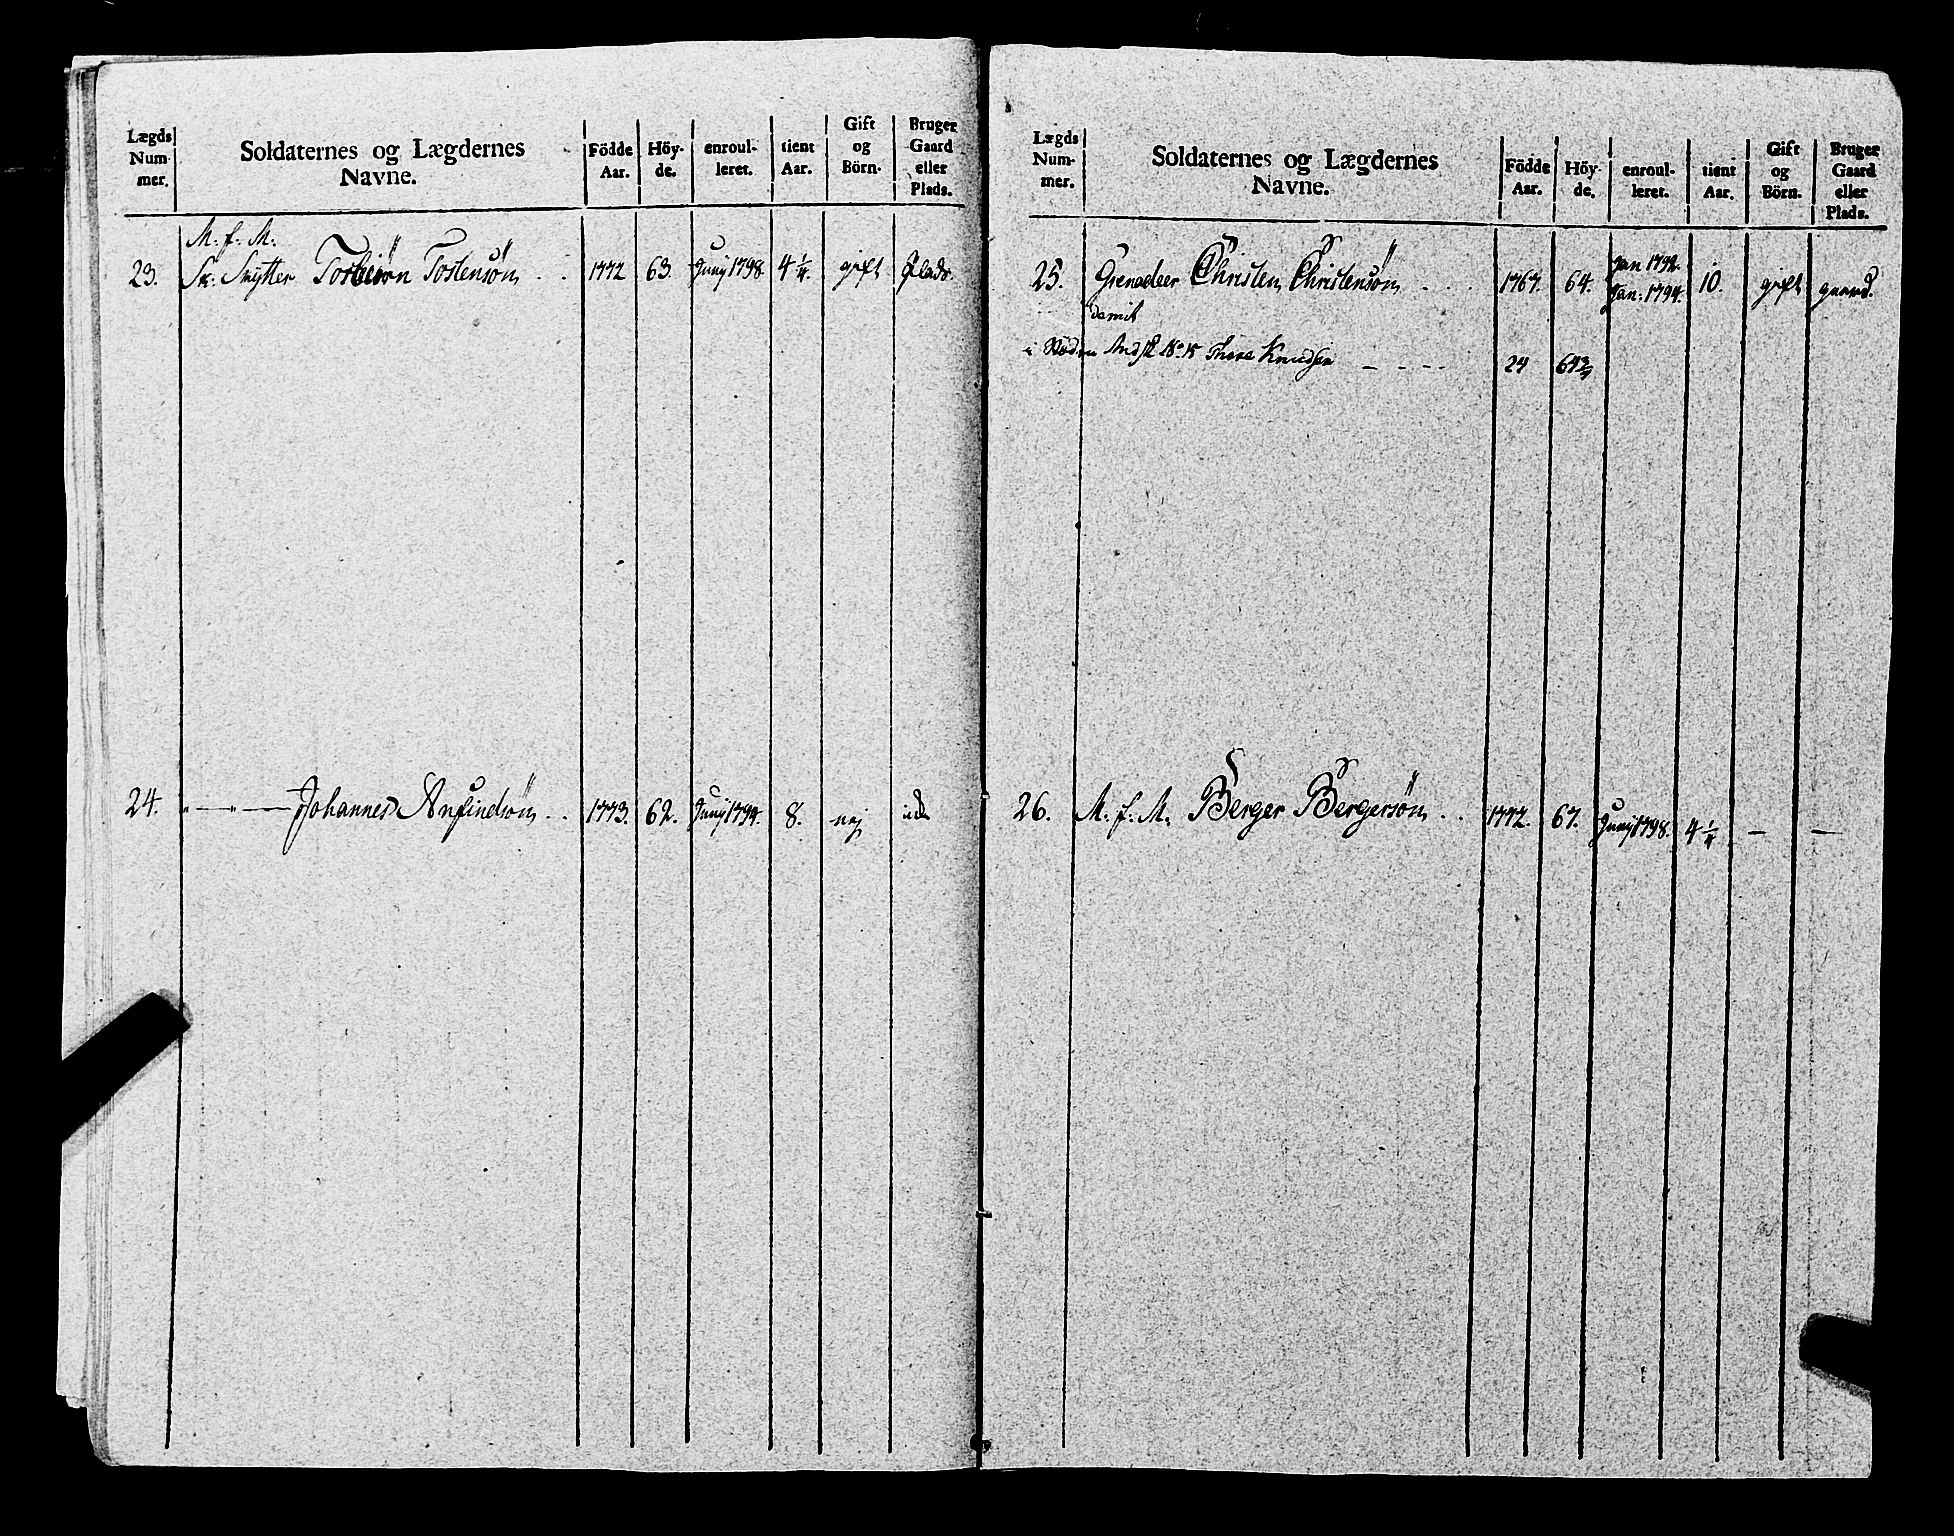 Lægds Num- mer. Soldaternes og Lægdernes Navne. Födde Aar. Höy- de. enroul- leret. tient Aar. Gift og Börn. Bruger Gaard eller Plads.
M. f. M.
23. Sk: Skytter Torbiörn Tostensön . . 1772 63. Junij 1798. 4 1/4. gift Plads.
24. " — " — Johannes Anfindsön . . 1773. 62. Junij 1794. 8. nej ids
Lægds Num- mer. Soldaternes og Lægdernes Navne. Födde Aar. Höy- de. enroul- leret. tient Aar. Gift og Börn. Bruger Gaard eller Plads.
Jan 1792.
25. Grenadeer Christen Christensön . . . . 1767. 64. Jan: 1794. 10. gift gaard.
demit
Knudsen — - - - 24 64 3/4
26. M. f. M. Berger Bergersön . . 1772. 67. Junij 1798. 4 1/4 — —